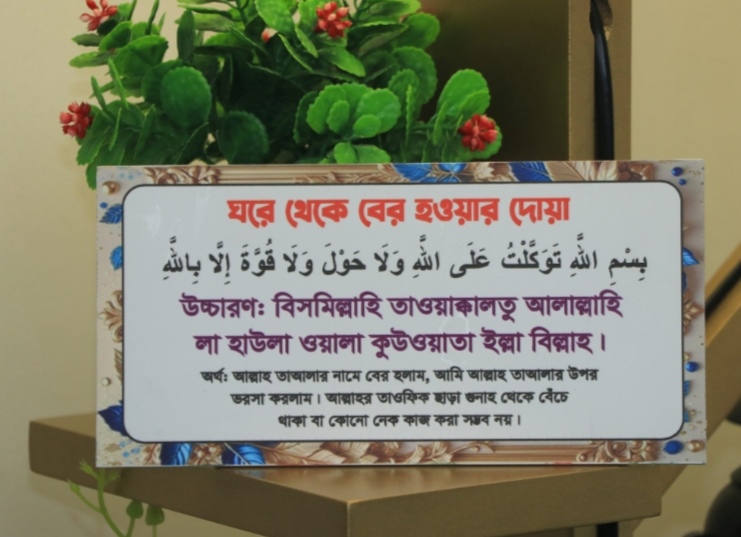 ঘরে থেকে বের হওয়ার দোয়া
بِسْمِ اللَّهِ تَوَكَّلْتُ عَلَى اللَّهِ وَلَا حَوْلَ وَلَا قُوَّةَ إِلَّا بِاللَّهِ
উচ্চারণ: বিসমিল্লাহি তাওয়াক্কালতু আলাল্লাহি
লা হাউলা ওয়ালা কুউওয়াতা ইল্লা বিল্লাহ।
অর্থ: আল্লাহ তাআলার নামে বের হলাম, আমি আল্লাহ তাআলার উপর
ভরসা করলাম। আল্লাহর তাওফিক ছাড়া গুনাহ থেকে বেঁচে
থাকা বা কোনো নেক কাজ করা সম্ভব নয়।